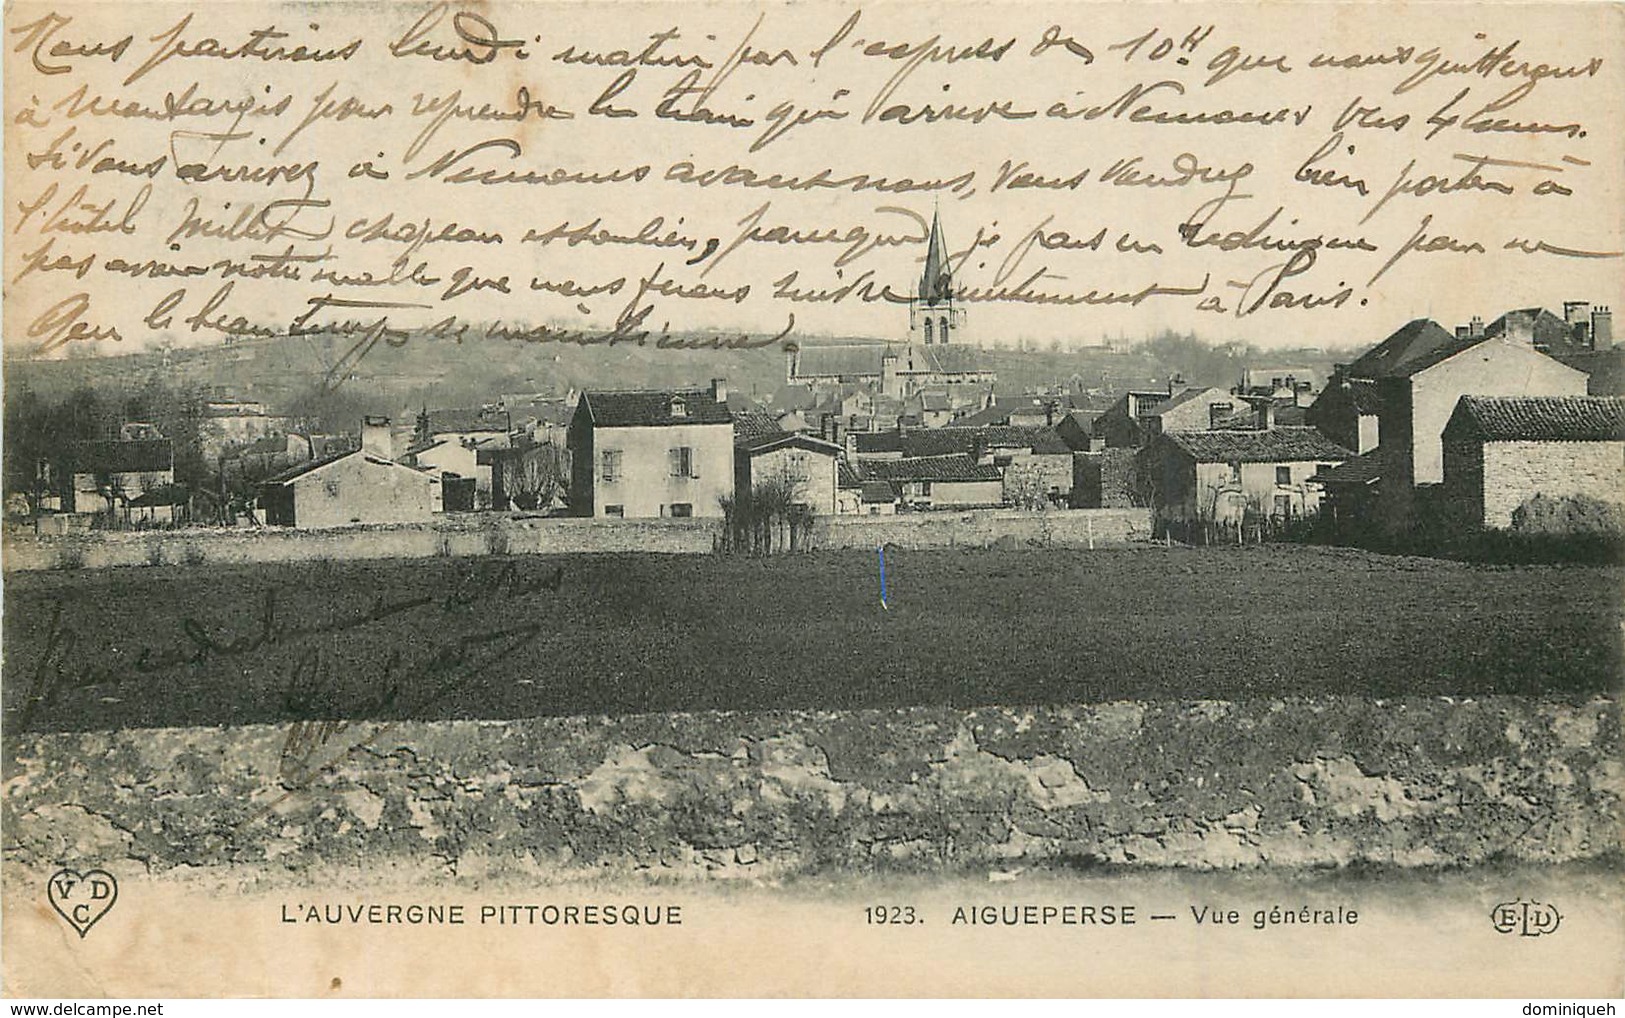 Nous partirons lundi matin par l'express de 10H que nous quitterons
à Montargis pour reprendre le train qui arrive à Nemours vers 4 heures.
Si vous arrivez à Nemours avant nous, vous voudrez bien porter à
l'hôtel Millet chapeau et souliers, parceque je pars en redingote pour ne
pas avoir notre malle que nous ferons suivre directement à Paris.
Que le beau temps se maintienne.
VDC
L'AUVERGNE PITTORESQUE
1923. AIGUEPERSE — Vue générale
E.L.D
dominiqueh